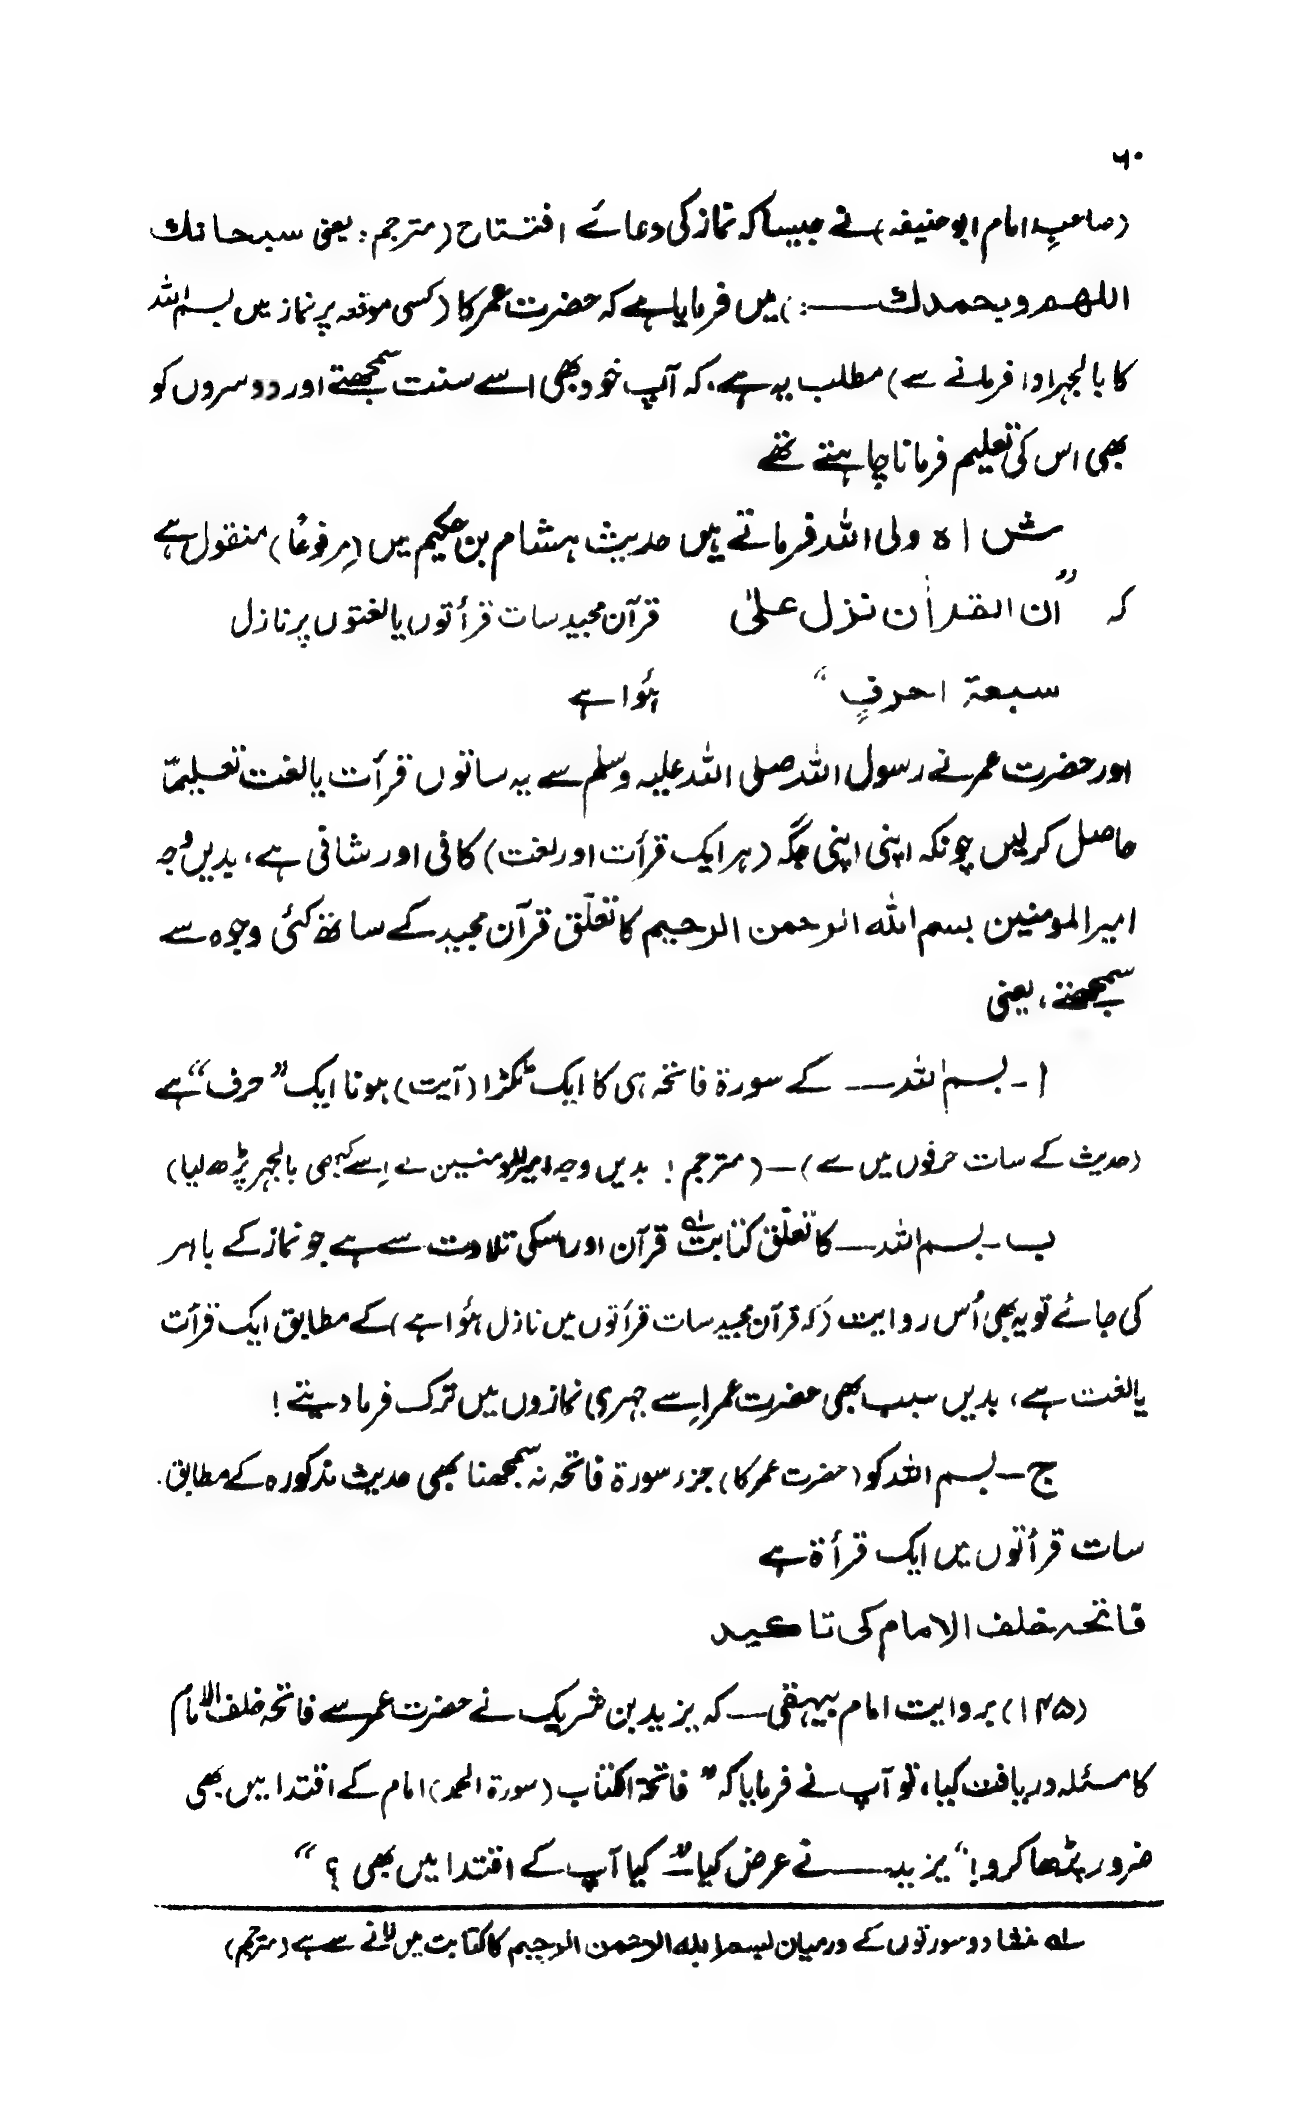 ۶۰
(صاحبِ امام ابو حنیفہ) نے جیسا کہ نماز کی دعائے افتتاح (مترجم: یعنی سبحانك
اللهم وبحمدك ـــــ :) میں فرمایا ہے کہ حضرت عمر کا (کسی موقعہ پر نماز میں بسم اللہ
کا بالجہر ادا فرمانے سے) مطلب یہ ہے، کہ آپ خود بھی اسے سنت سمجھتے اور دوسروں کو
بھی اس کی تعلیم فرمانا چاہتے تھے
شاہ ولی اللہ فرماتے ہیں حدیث ہشام بن حکیم میں (مرفوعًا) منقول ہے
کہ ”ان القراٰن نزل علیٰ قرآن مجید سات قرأتوں یا لغتوں پر نازل
سبعة احرفٍ“ ہُوا ہے
اور حضرت عمر نے رسول اللہ صلی اللہ علیہ وسلم سے یہ ساتوں قرأت یا لغت تعلیمًا
حاصل کرلیں چونکہ اپنی اپنی جگہ (ہر ایک قرأت اور لغت) کافی اور شافی ہے، بدیں وجہ
امیر المومنین بسم اللہ الرحمن الرحیم کا تعلّق قرآن مجید کے ساتھ کئی وجوہ سے
سمجھتے، یعنی
ا ۔ بسم اللہ ـــ کے سورۃ فاتحہ ہی کا ایک ٹکڑا (آیت) ہونا ایک ”حرف“ ہے
(حدیث کے سات حرفوں میں سے) ـ (مترجم! بدیں وجہ امیر المومنین نے اِسے کبھی بالجہر پڑھ لیا)
ب ۔ بسم اللہ ـــ کا تعلّق کتابت لہ قرآن اور اسکی تلاوت سے ہے جو نماز کے باہر
کی جائے تو یہ بھی اُس روایت (کہ قرآن مجید سات قرأتوں میں نازل ہُوا ہے) کے مطابق ایک قرأت
یا لغت ہے، بدیں سبب بھی حضرت عمر اِسے جہری نمازوں میں ترک فرما دیتے!
ج ـ بسم اللہ کو (حضرت عمر کا) جزء سورۃ فاتحہ نہ سمجھنا بھی حدیث مذکورہ کے مطابق۔
سات قرأتوں میں ایک قرأۃ ہے
فاتحہ خلف الامام کی تاکید
(۱۴۵) بروایت امام بیہقی ـــ کہ یزید بن شریک نے حضرت عمر سے فاتحہ خلف الامام
کا مسئلہ دریافت کیا، تو آپ نے فرمایا کہ ”فاتحۃ الکتاب (سورۃ الحمد) امام کے اقتدا میں بھی
ضرور پڑھا کرو!“ یزید ـــــ نے عرض کیا ـ ”کیا آپ کے اقتدا میں بھی ؟“
لہ منشا دو سورتوں کے درمیان بسم اللہ الرحمن الرحیم کا کتابت میں لانے سے ہے (مترجم)